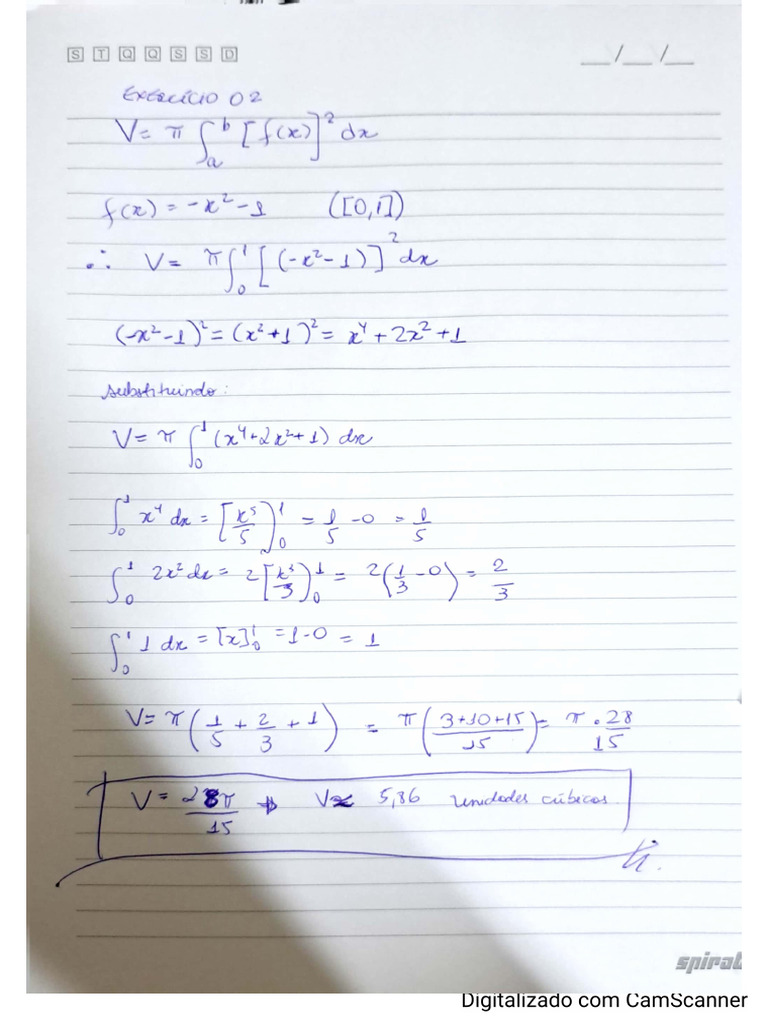 S T Q Q S S D __/__/__
EXERCÍCIO 02
V = π ∫ₐᵇ [f(x)]² dx
f(x) = -x² - 1 ([0,1])
∴ V = π ∫₀¹ [(-x² - 1)]² dx
(-x² - 1)² = (x² + 1)² = x⁴ + 2x² + 1
substituindo:
V = π ∫₀¹ (x⁴ + 2x² + 1) dx
∫₀¹ x⁴ dx = [x⁵/5]₀¹ = 1/5 - 0 = 1/5
∫₀¹ 2x² dx = 2[x³/3]₀¹ = 2(1/3 - 0) = 2/3
∫₀¹ 1 dx = [x]₀¹ = 1 - 0 = 1
V = π(1/5 + 2/3 + 1) = π(3+10+15/15) = π . 28/15
V = 28π/15 → V ≈ 5,86 unidades cúbicas.
spiral
Digitalizado com CamScanner